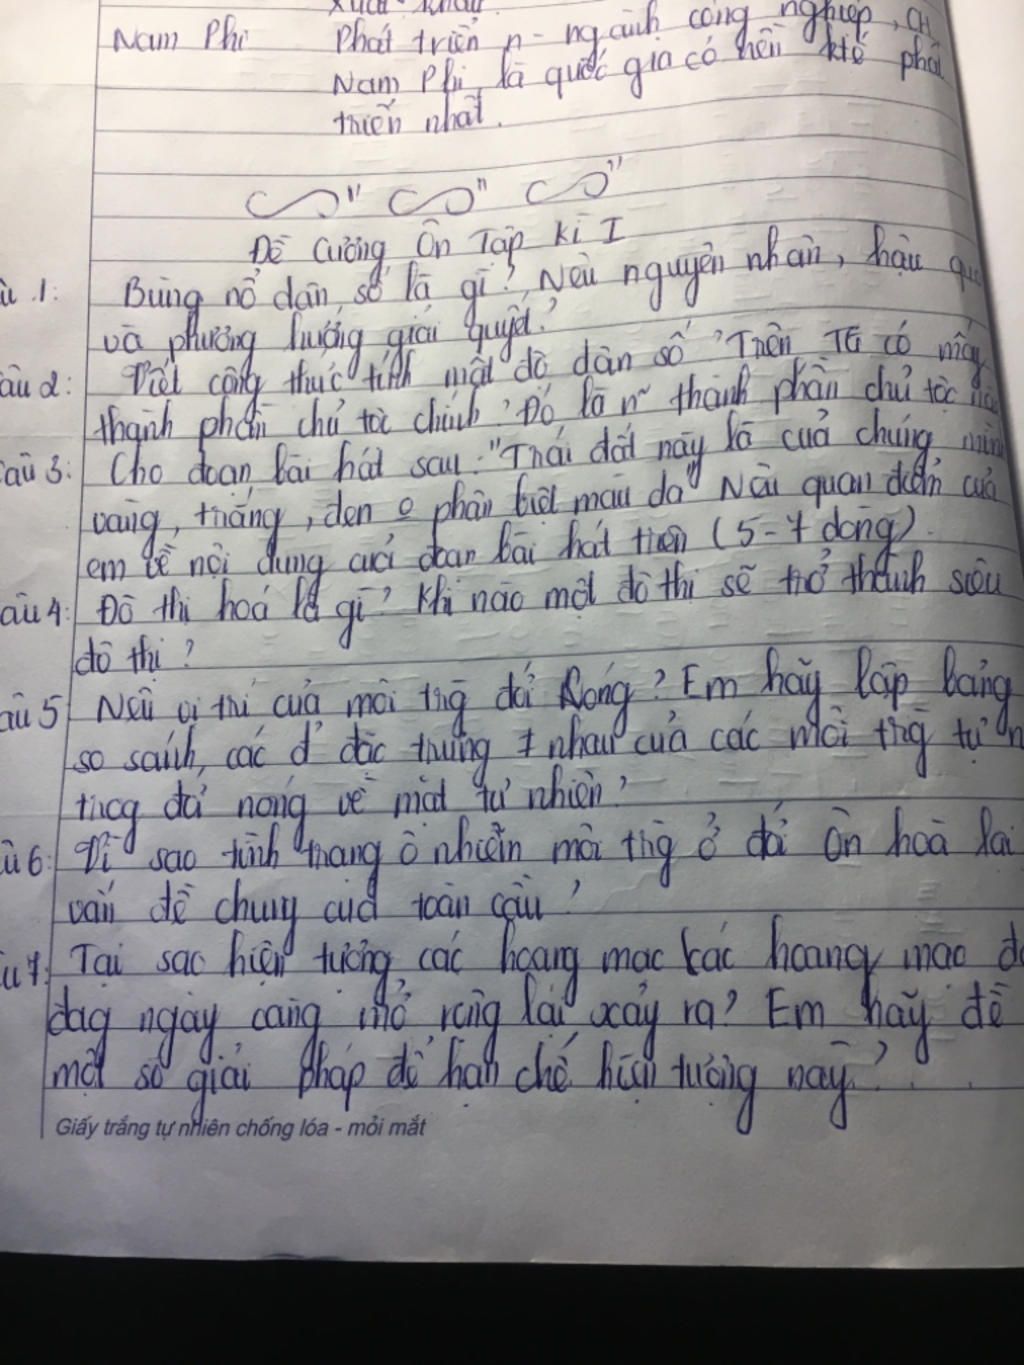 xuất khẩu
Nam Phi Phát triển n~ ngành công nghiệp, CH
Nam Phi là quốc gia có nền ktế phát
triển nhất.
Đề Cương Ôn Tập kì I
u 1: Bùng nổ dân số là gì? Nêu nguyên nhân, hậu qu
và phương hướng giải quyết?
âu 2: Viết công thức tính mật độ dân số? Trên TG có mấy
thành phần chủ tộc chính? Đó là n~ thành phần chủ tộc nào
âu 3: Cho đoạn bài hát sau: "Trái đất này là của chúng mình
vàng, trắng, đen o phân biệt màu da" Nêu quan điểm của
em về nội dung của đoạn bài hát trên (5-7 dòng).
âu 4: Đô thị hoá là gì? Khi nào một đô thị sẽ trở thành siêu
đô thị?
âu 5 Nêu vị trí của môi trg đới nóng? Em hãy lập bảng
so sánh, các đ² đặc trưng ≠ nhau của các môi trg tự n
trog đới nóng về mặt tự nhiên?
u 6: Vì sao tình trạng ô nhiễm môi trg ở đới ôn hoà lại
vấn đề chung của toàn cầu?
u 7: Tại sao hiện tượng các hoang mạc các hoang mạc đ
đag ngày càng mở rộng lại xảy ra? Em hãy đề
một số giải pháp để hạn chế hiện tượng này?
Giấy trắng tự nhiên chống lóa - mỏi mắt